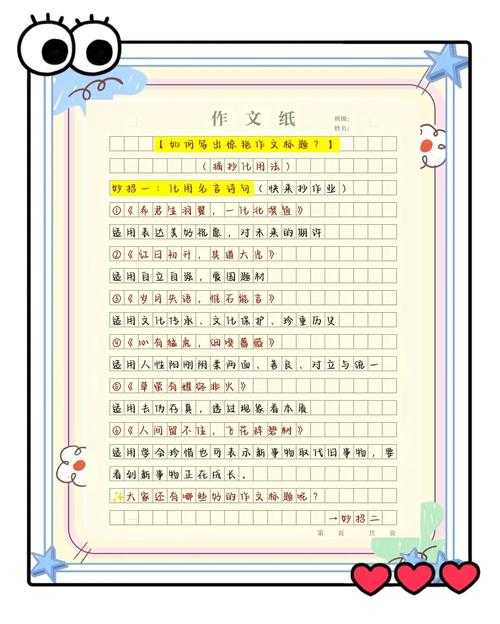 作 文 纸
班级:
姓名:
【如何写出惊艳作文标题?】
(摘抄化用法)
妙招一:化用名言诗句(快来抄作业)
①《希君生羽翼,一化北溟鱼》
适用表达美好祝愿,对未来的期许
②《红日初升,其道大光》
适用自立自强,爱国题材
③《岁月失语,惟石能言》
适用文化传承、文化保护、珍重历史
④《心有猛虎,细嗅蔷薇》
适用人性阳刚阴柔两面,善良、对立与统一
⑤《草萤有耀终非火》
适用去伪存真,透过现象看本质
⑥《人间留不住,飞花辞碧树》
适用学会珍惜也可表示新事物取代旧事物,要
看到新事物正在成长。
大家还有哪些好的作文标题呢?
→妙招二
第 页 共 页